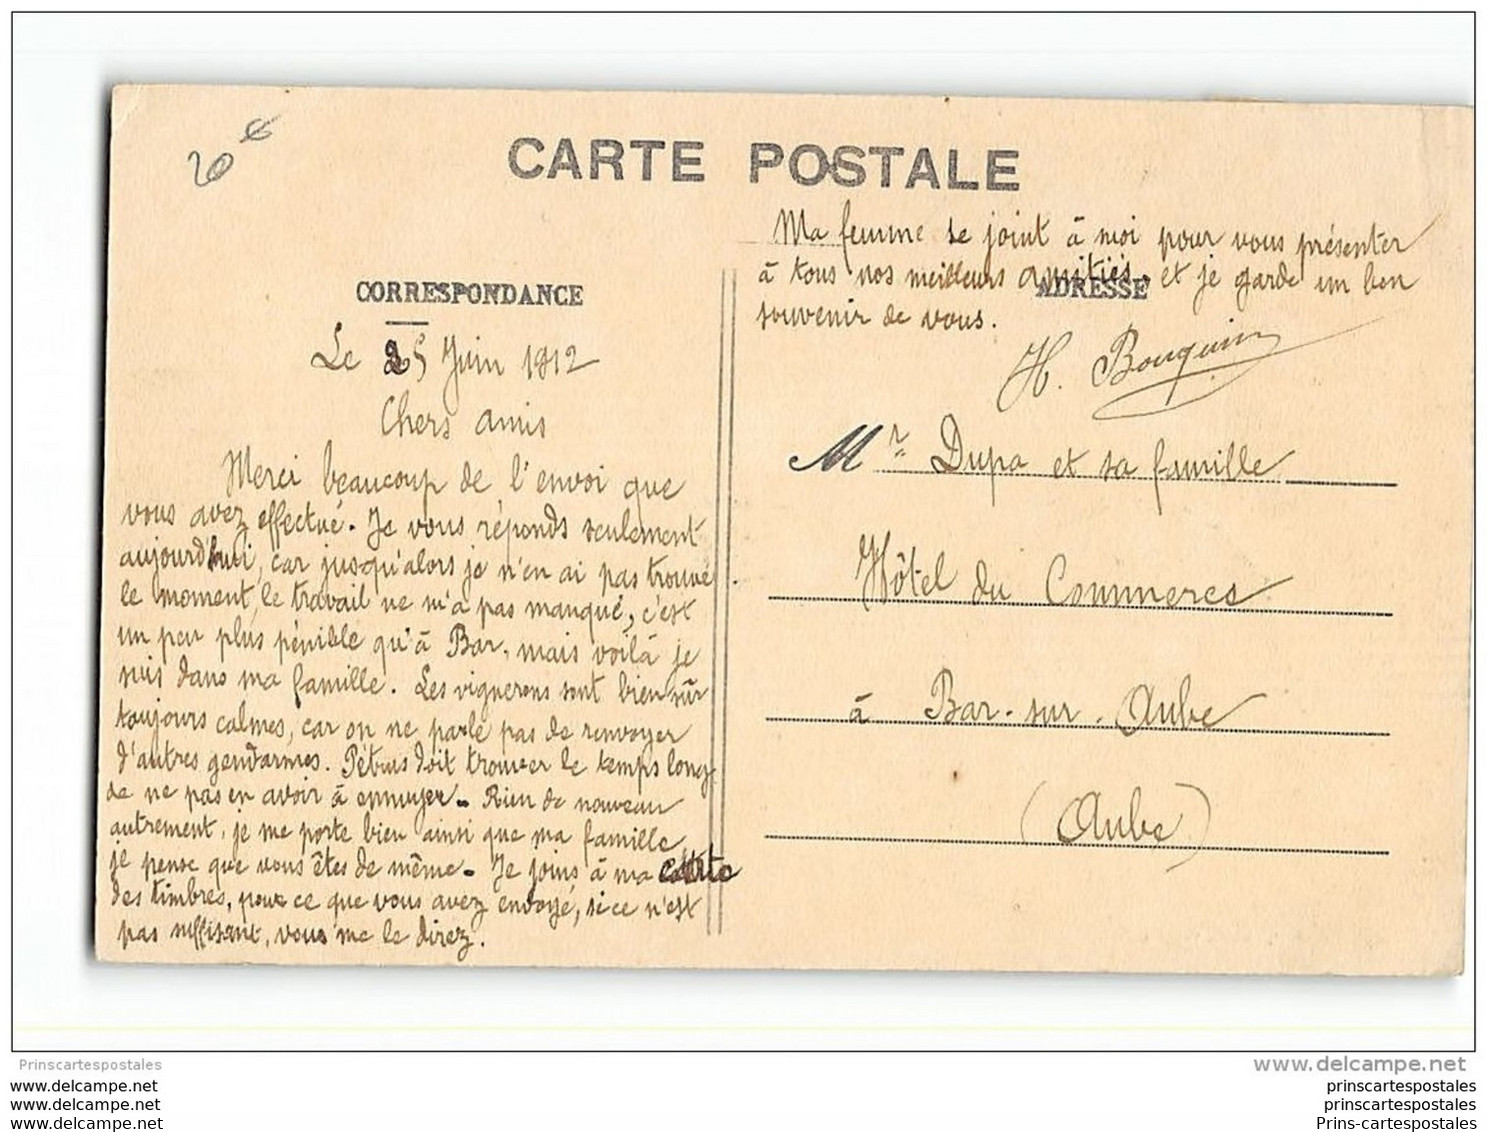 20€
CARTE POSTALE
CORRESPONDANCE
Le 25 Juin 1912
Chers amis
Merci beaucoup de l'envoi que
vous avez effectué. Je vous réponds seulement
aujourd'hui, car jusqu'alors je n'en ai pas trouvé
le moment, le travail ne m'a pas manqué, c'est
un peu plus pénible qu'à Bar, mais voilà je
suis dans ma famille. Les vignerons sont bien sûr
toujours calmes, car on ne parle pas de renvoyer
d'autres gendarmes. Pétrus doit trouver le temps long
de ne pas en avoir à ennuyer. Rien de nouveau
autrement, je me porte bien ainsi que ma famille
je pense que vous êtes de même. Je joins à ma carte
des timbres, pour ce que vous avez envoyé, si ce n'est
pas suffisant, vous me le direz.
Ma femme se joint à moi pour vous présenter
à tous nos meilleurs amitiés, et je garde un bon
ADRESSE
souvenir de vous.
H. Bouquin
Mr Dupa et sa famille
Hôtel du Commerces
à Bar-sur-Aube
(Aube)
Prinscartespostales
www.delcampe.net
www.delcampe.net
www.delcampe.net
www.delcampe.net
prinscartespostales
prinscartespostales
Prins-cartespostales